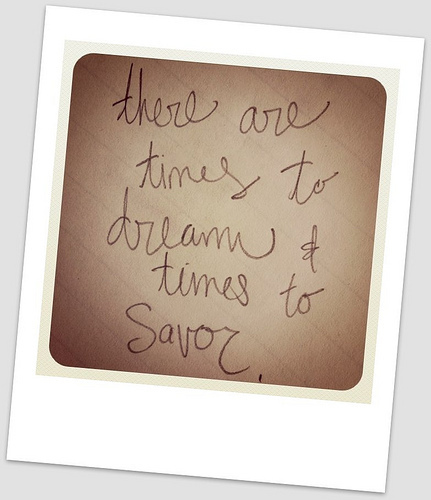 there are
times to
dream &
times to
Savor.